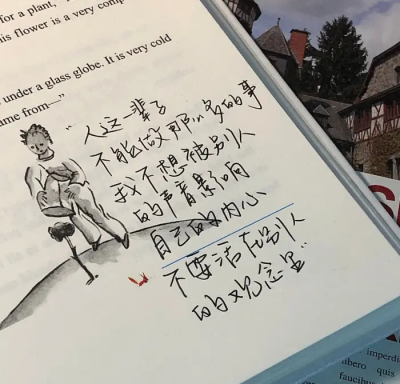 for a plant,
his flower is a very comp
under a glass globe. It is very cold
ame from—"
"人这一辈子
不能做那么多的事
我不想被别人
的声音影响
自己的内心
不要活在别人
的观念里"
imperdi
libero quis
faucibus